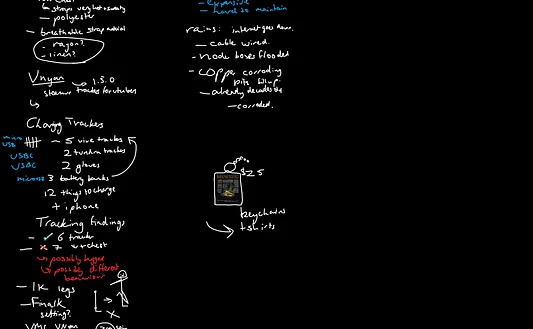 straps very hot + sweaty
— polyester
— breathable strap material
- rayon?
- linen?
Vnyan
1.5.0
Charging Trackers
micro USB
— 5 vive trackers
USBC
2 tundra trackers
USBC
2 gloves
3 battery banks
12 things to charge
+ iphone
Tracking findings
- ✓ 6 tracker
— x 7
chest
possibly bigger
possibly different behaviour
- IK legs
setting?
VMC Vnyan
— expensive
— hard to maintain
rains: internet goes down.
— cable wired.
- node boxes flooded
- copper corroding
pits fill up
— already decades old
— corroded.
$25
keychains
t-shirts